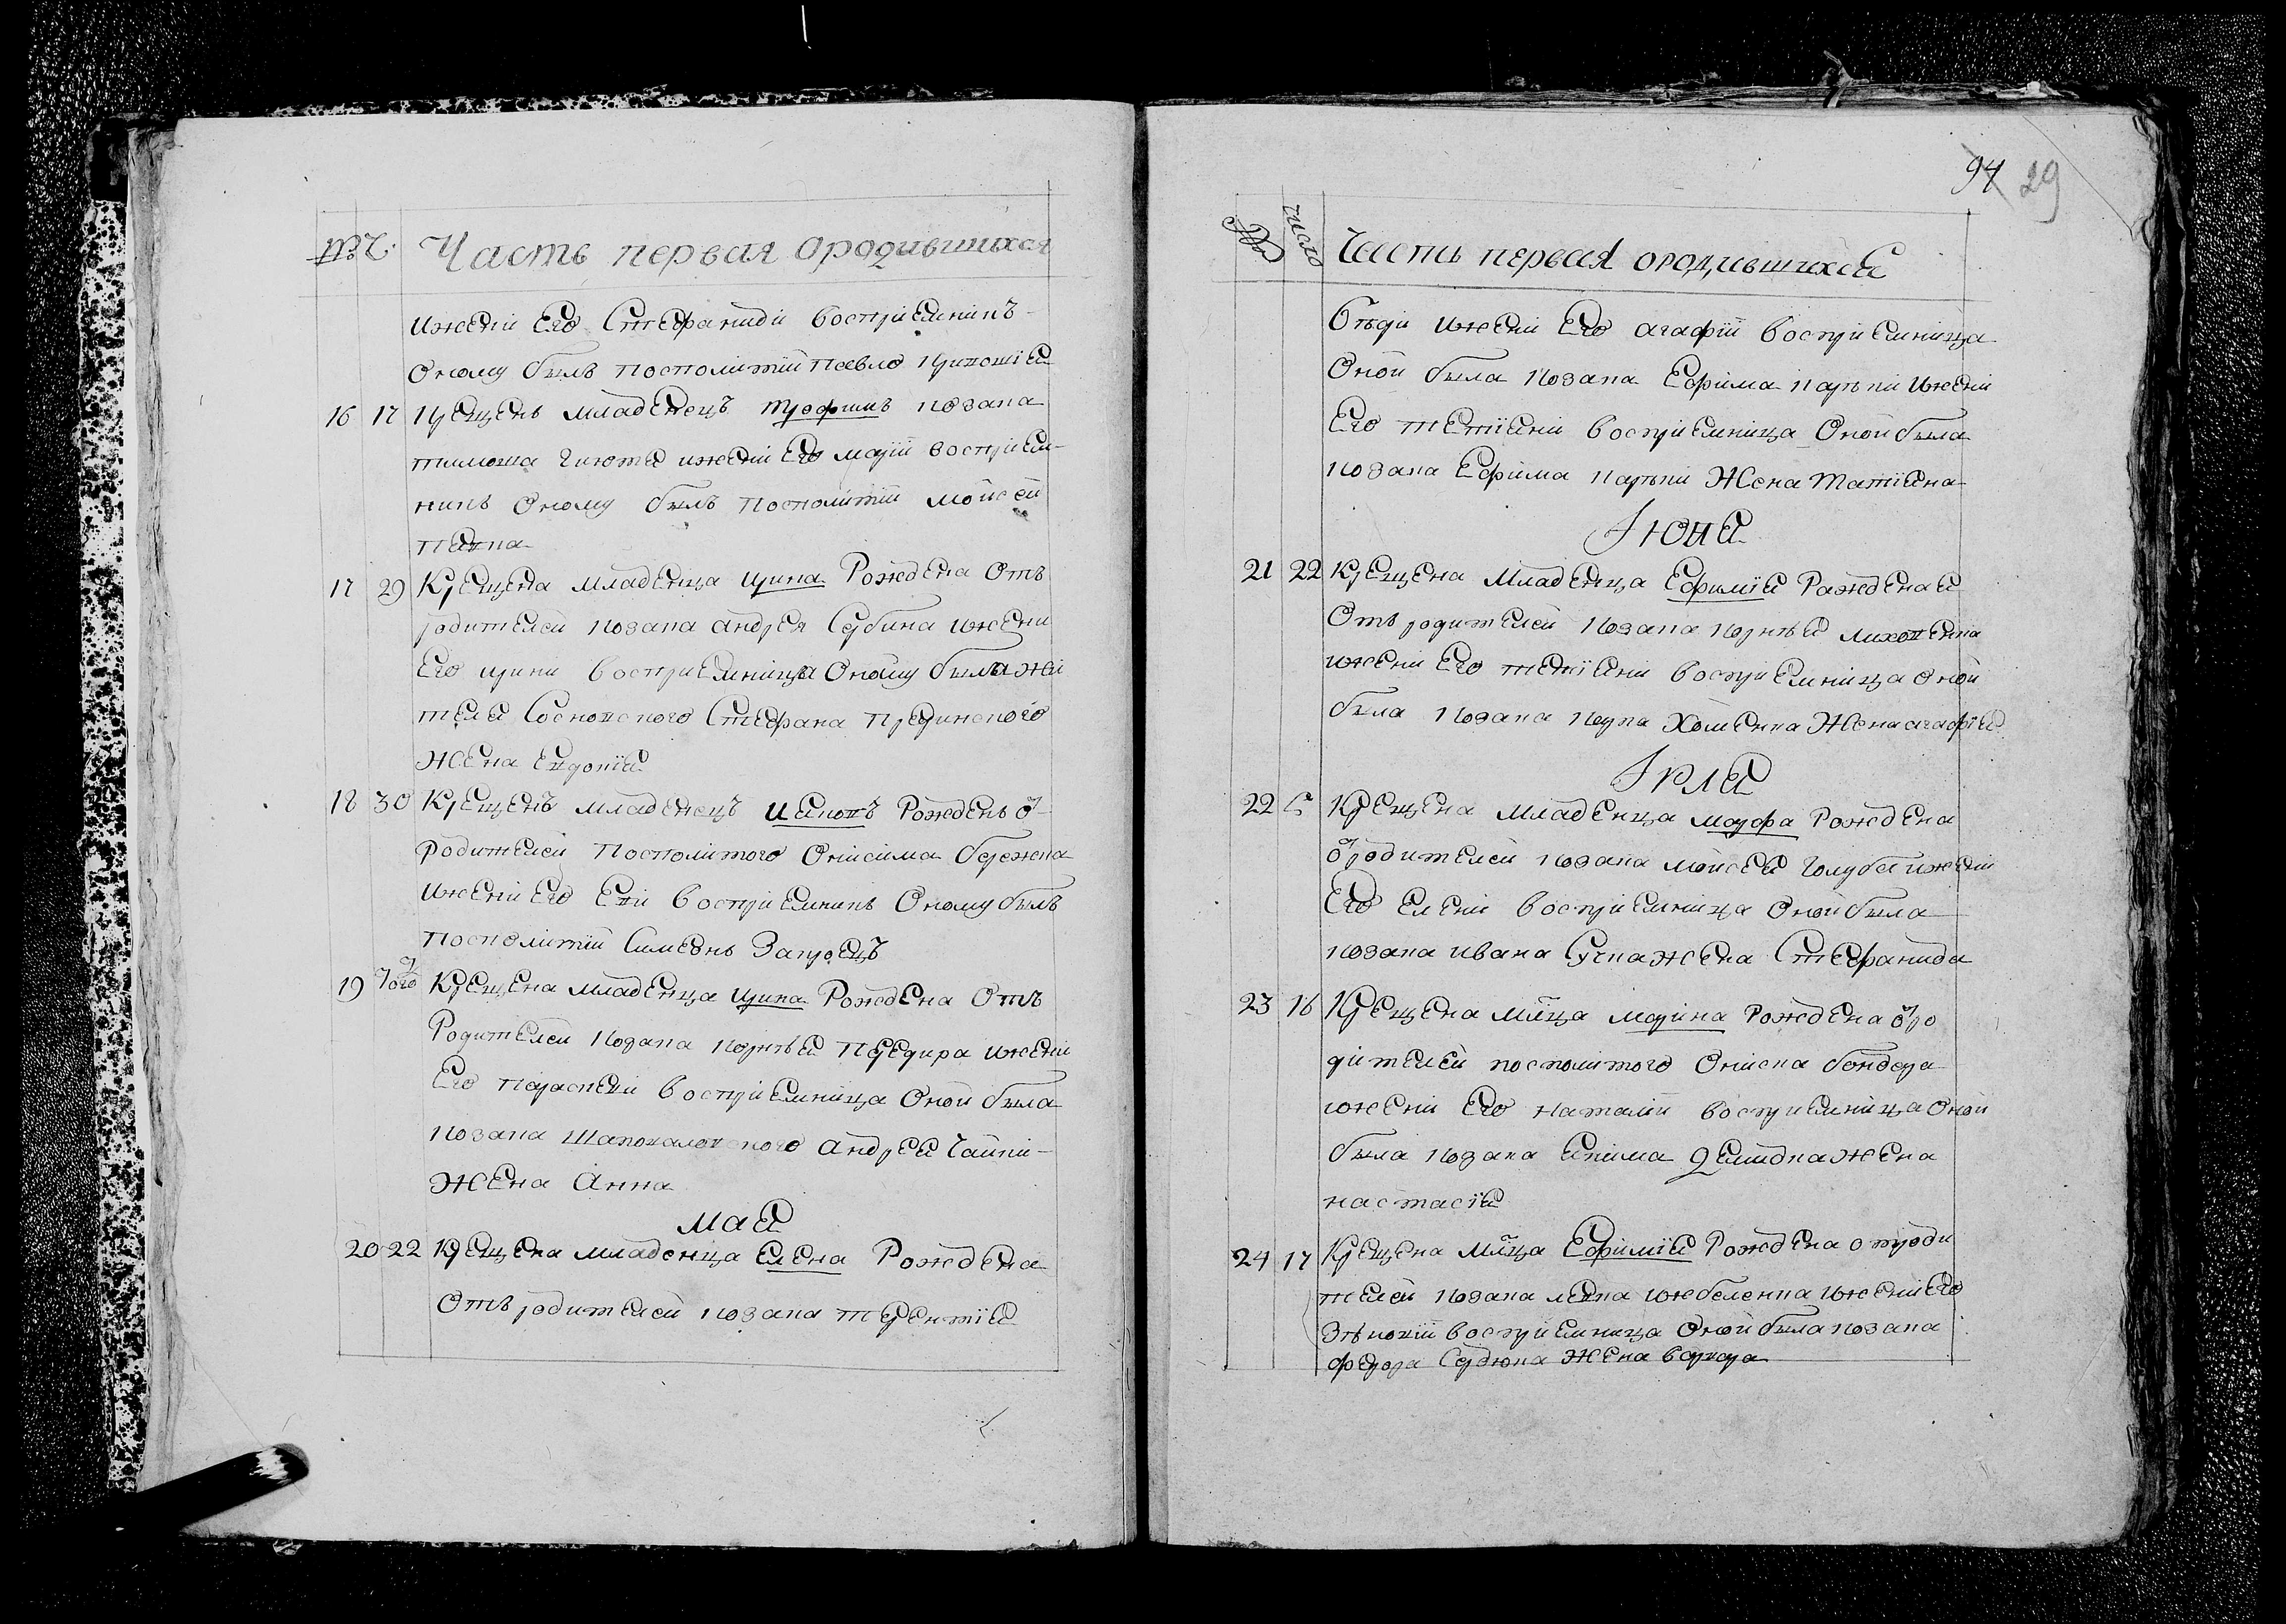 № Ч: Часть первая ородившихся
ижени Его Стефаниди восприемникъ
оному былъ посполитий павло
16 17 Крещенъ младенецъ трофимъ козака
тимоша ижени Его марiи восприем-
никъ Оному былъ посполитiи мойсей
17 29 Крещена младенца ирина Рождена Отъ
родителей козака андрея Сербина ижени
Его ирини восприемница Оному была жи
теля Сосновского Стефана
жена Евдокiя
18 30 Крещенъ младенецъ иаковъ Рожденъ от
родителей посполитого Онисима бережка
ижени Его Еви восприемникъ Оному былъ
посполитiи Симеонъ
19 того Крещена младенца ирина Рождена Отъ
Родителей козака корнѣя ижени
Его параскеви восприемница Оной была
козака шаповаловского андрея чайки
жена Анна
мая
20 22 Крещена младенца Елена Рождена
Отъ родителей козака терентiя
94 29
№ число Часть первая ородившихся
ижени Его агафiи восприемница
Оной была козака Ефима ижени
Его тетiяни восприемница Оной была
козака Ефима Жена татiяна
Iюня
21 22 Крещена младенца Ефимiя Ражденая
Отъ родителей козака корнѣя
ижени Его тетiяни восприемница оной
была козака карпа Хоменка Жена агафiя
Iюля
22 5 Крещена младенца марфа Рождена
от родителей козака мойсея голуба ижени
Его Елени восприемница Оной была
козака ивана жена Стефанида
23 16 Крещена млца марина Рождена от ро
дителей посполитого Описка бондара
ижени Его наталiи восприемница Оной
была козака Якима Демидка жена
настасiя
24 17 Крещена млца Ефимiя Рождена от роди
телей козака ижени Его
Зѣновiи восприемница Оной была козака
федора Сердюка Жена варвара